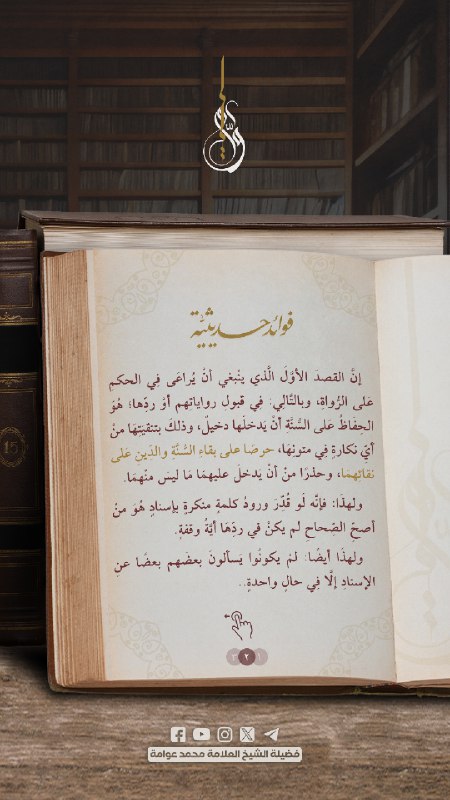 فوائد حديثية
إنَّ القصدَ الأوَّلَ الَّذي ينْبغي أنْ يُراعَى فِي الحكمِ
علَى الرُّواةِ، وبالتَّالِي: فِي قبولِ رواياتهِم أوْ ردِّها؛ هُوَ
الحفاظُ علَى السُّنَّةِ أنْ يَدخلَها دخيلٌ، وذلكَ بتنقيتِهَا منْ
أيِّ نكارةٍ فِي متونِهَا، حرصًا على بقاءِ السُّنَّة والدِّينِ علَى
نقائِهمَا، وحذرًا منْ أنْ يدخلَ عليهمَا مَا ليسَ منْهمَا.
ولهذَا: فإنَّه لَو قُدِّرَ ورودُ كلمةٍ منكرةٍ بإسنادٍ هُو منْ
أصحِّ الصِّحاحِ لم يكنْ في ردِّهَا أيَّةُ وقفةٍ.
ولهذَا أيضًا: لمْ يكونُوا يسألونَ بعضَهم بعضًا عنِ
الإسنادِ إلَّا فِي حالٍ واحدةٍ..
١ ٢ ٣
فضيلة الشيخ العلامة محمد عوامة
15